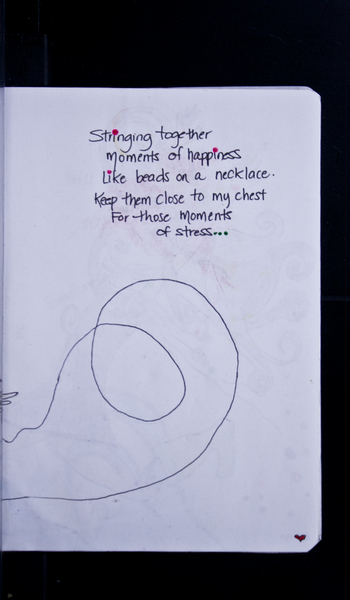 Stringing together
moments of happiness
Like beads on a necklace.
Keep them close to my chest
For those moments
of stress...